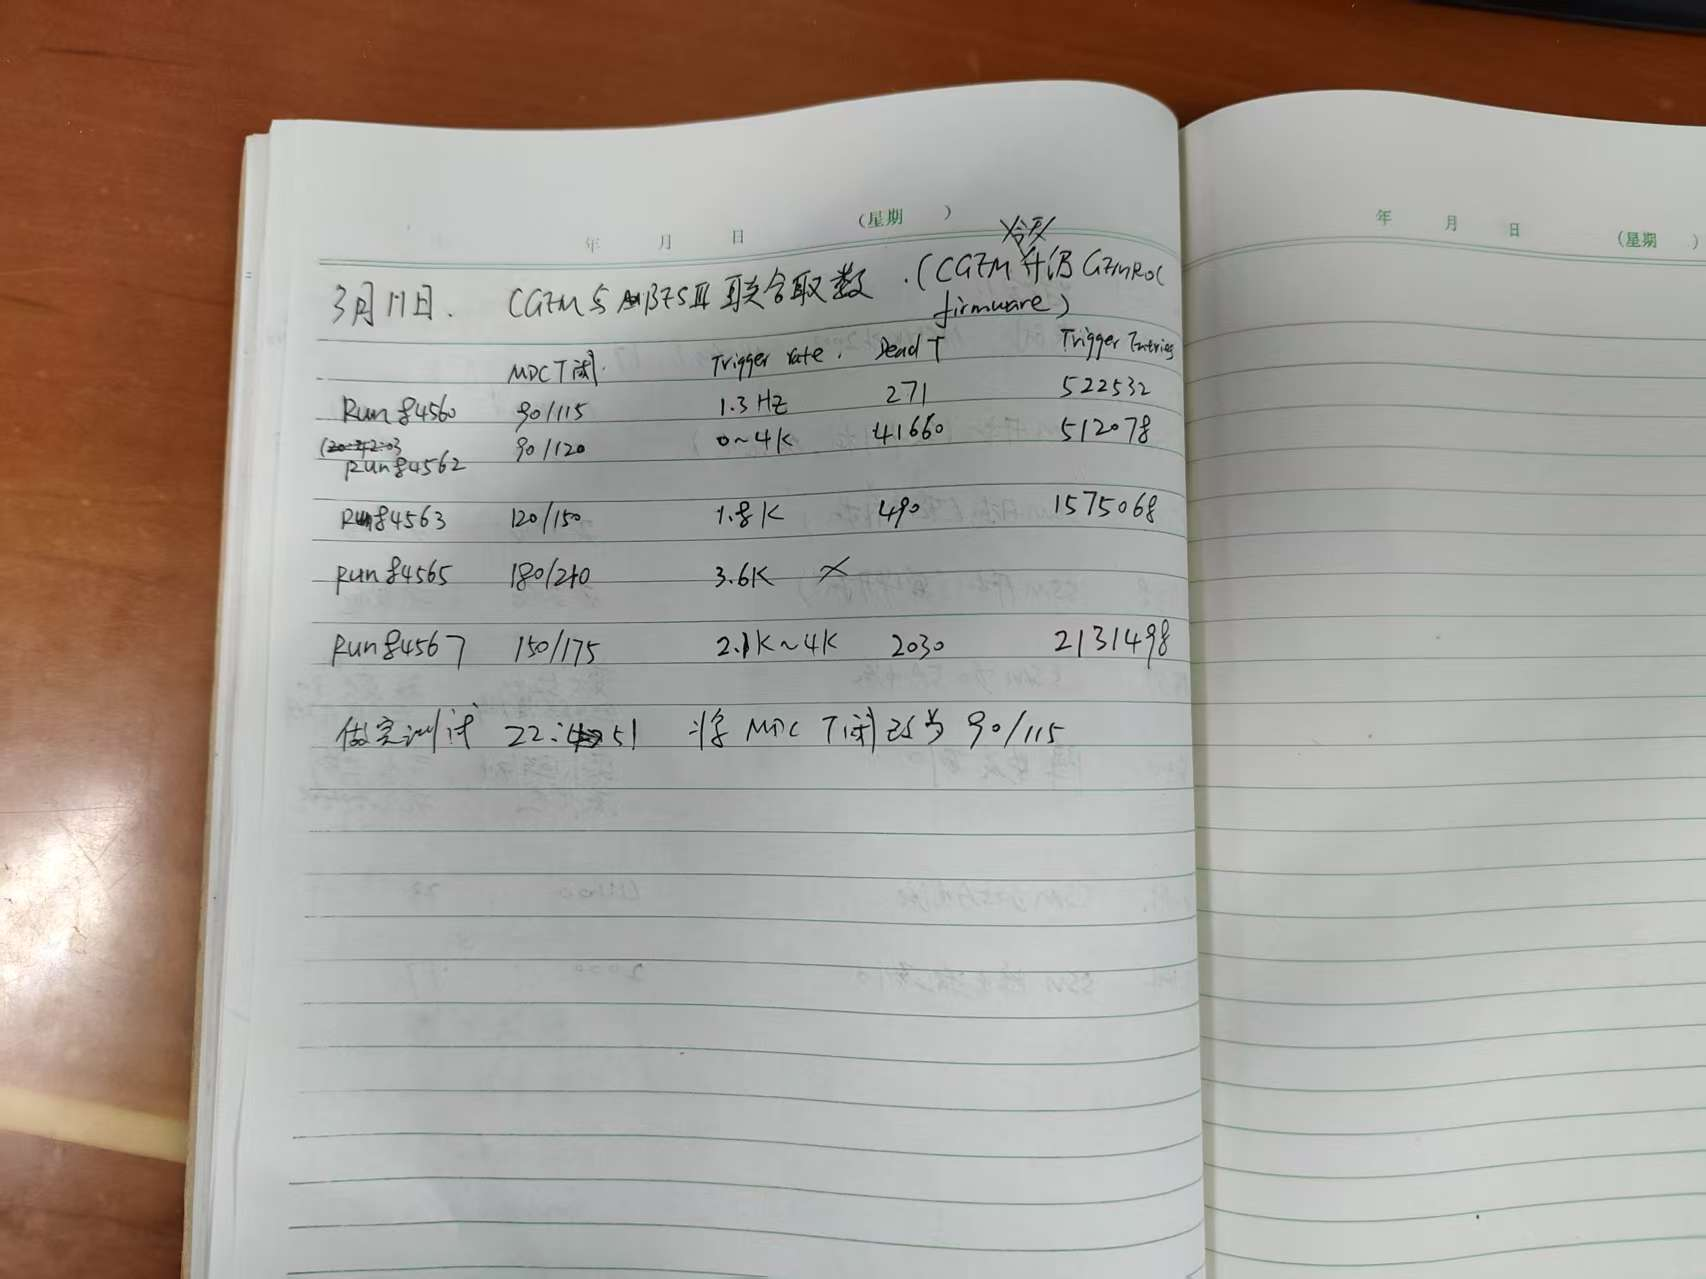 年 月 日 (星期 )
3月11日. CGEM与BESIII联合取数.(CGEM升级GEMROC
firmware)
MDC T阈. Trigger rate. Dead T Trigger Entries
Run 84560 90/115 1.3 Hz 271 522532
90/120 0~4K 41660 512078
Run 84562
Run 84563 120/150 1.8K 490 1575068
Run 84565 180/210 3.6K ×
Run 84567 150/175 2.1K~4K 2030 2131498
做完测试 22:51 将 MDC T阈改为 90/115
年 月 日 (星期 )